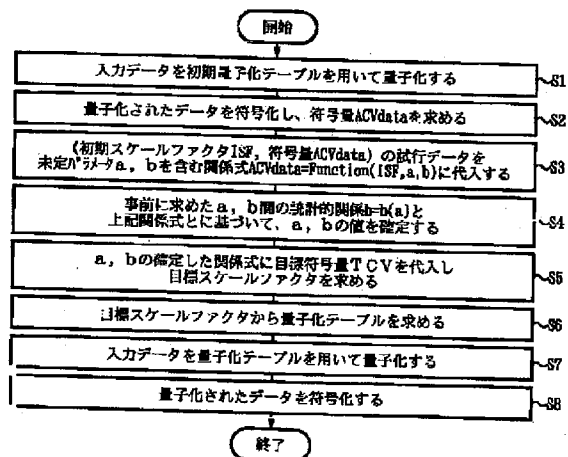 開始
入力データを初期量子化テーブルを用いて量子化する
S1
量子化されたデータを符号化し、符号量ACVdataを求める
S2
(初期スケールファクタISF, 符号量ACVdata) の試行データを
未定パラメータa, bを含む関係式ACVdata=Function(ISF,a,b)に代入する
S3
事前に求めたa, b間の統計的関係b=b(a)と
上記関係式とに基づいて、a, bの値を確定する
S4
a, bの確定した関係式に目標符号量TCVを代入し
目標スケールファクタを求める
S5
目標スケールファクタから量子化テーブルを求める
S6
入力データを量子化テーブルを用いて量子化する
S7
量子化されたデータを符号化する
S8
終了